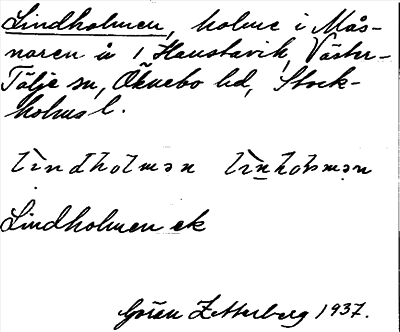 Lindholmen, holme i Mås-
naren å 1 Hanstavik, Väster-
Tälje sn, Öknebo hd, Stock-
holms l.
lìndholmən
Lindholmen ek
Göran Zetterberg 1937.